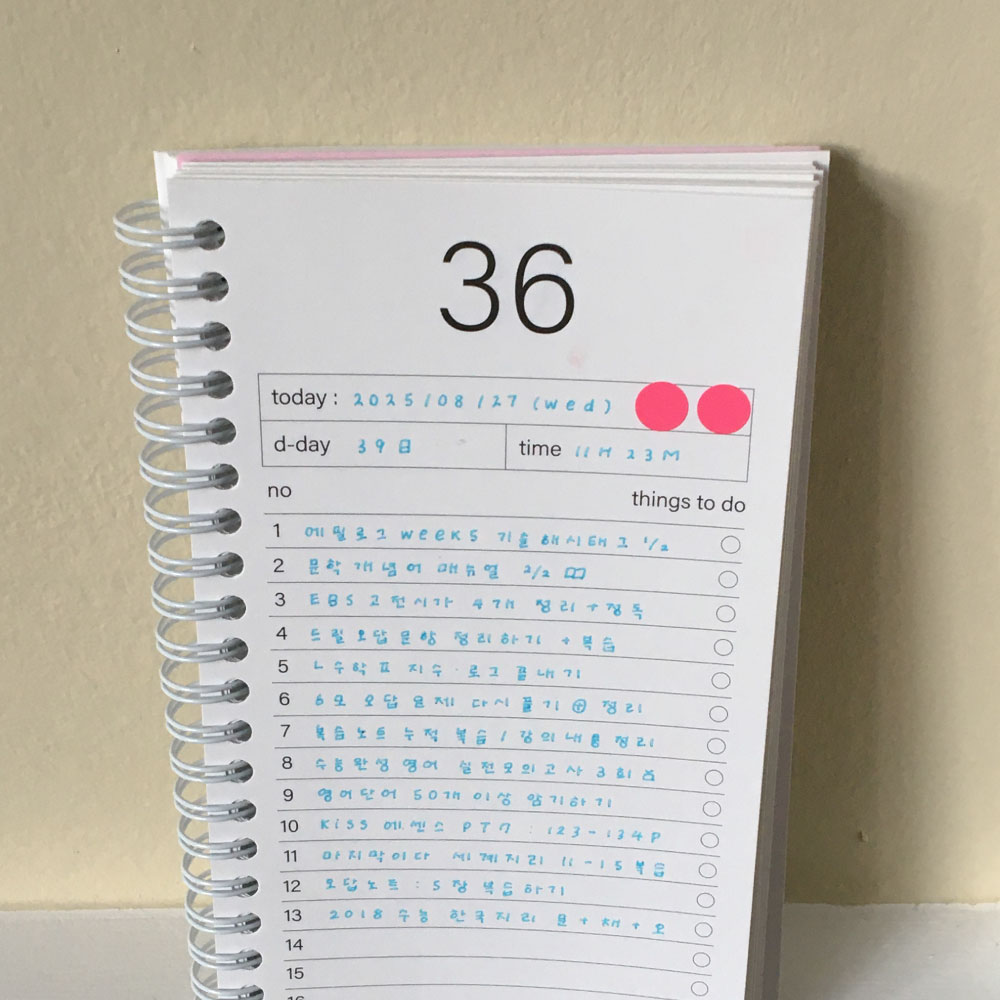 36
today : 2025/08/27 (wed)
d-day 39日 time 11H 23M
no things to do
1 에필로그 weeks 기출 해시태그 1/2
2 문학 개념어 매뉴얼 2/2
3 EBS 고전시가 4개 정리 + 정독
4 드릴 오답 문항 정리하기 + 복습
5 ㄴ 수학 Ⅱ 지수·로그 끝내기
6 6모 오답 문제 다시 풀기 ⊕ 정리
7 복습노트 누적 복습 / 강의 내용 정리
8 수능완성 영어 실전모의고사 3회
9 영어단어 50개 이상 암기하기
10 KISS 에센스 PT7 : 123-134P
11 마지막이다 세계지리 11-15 복습
12 오답노트 : 5장 복습하기
13 2018 수능 한국지리 문 + 채 + 오
14
15
16